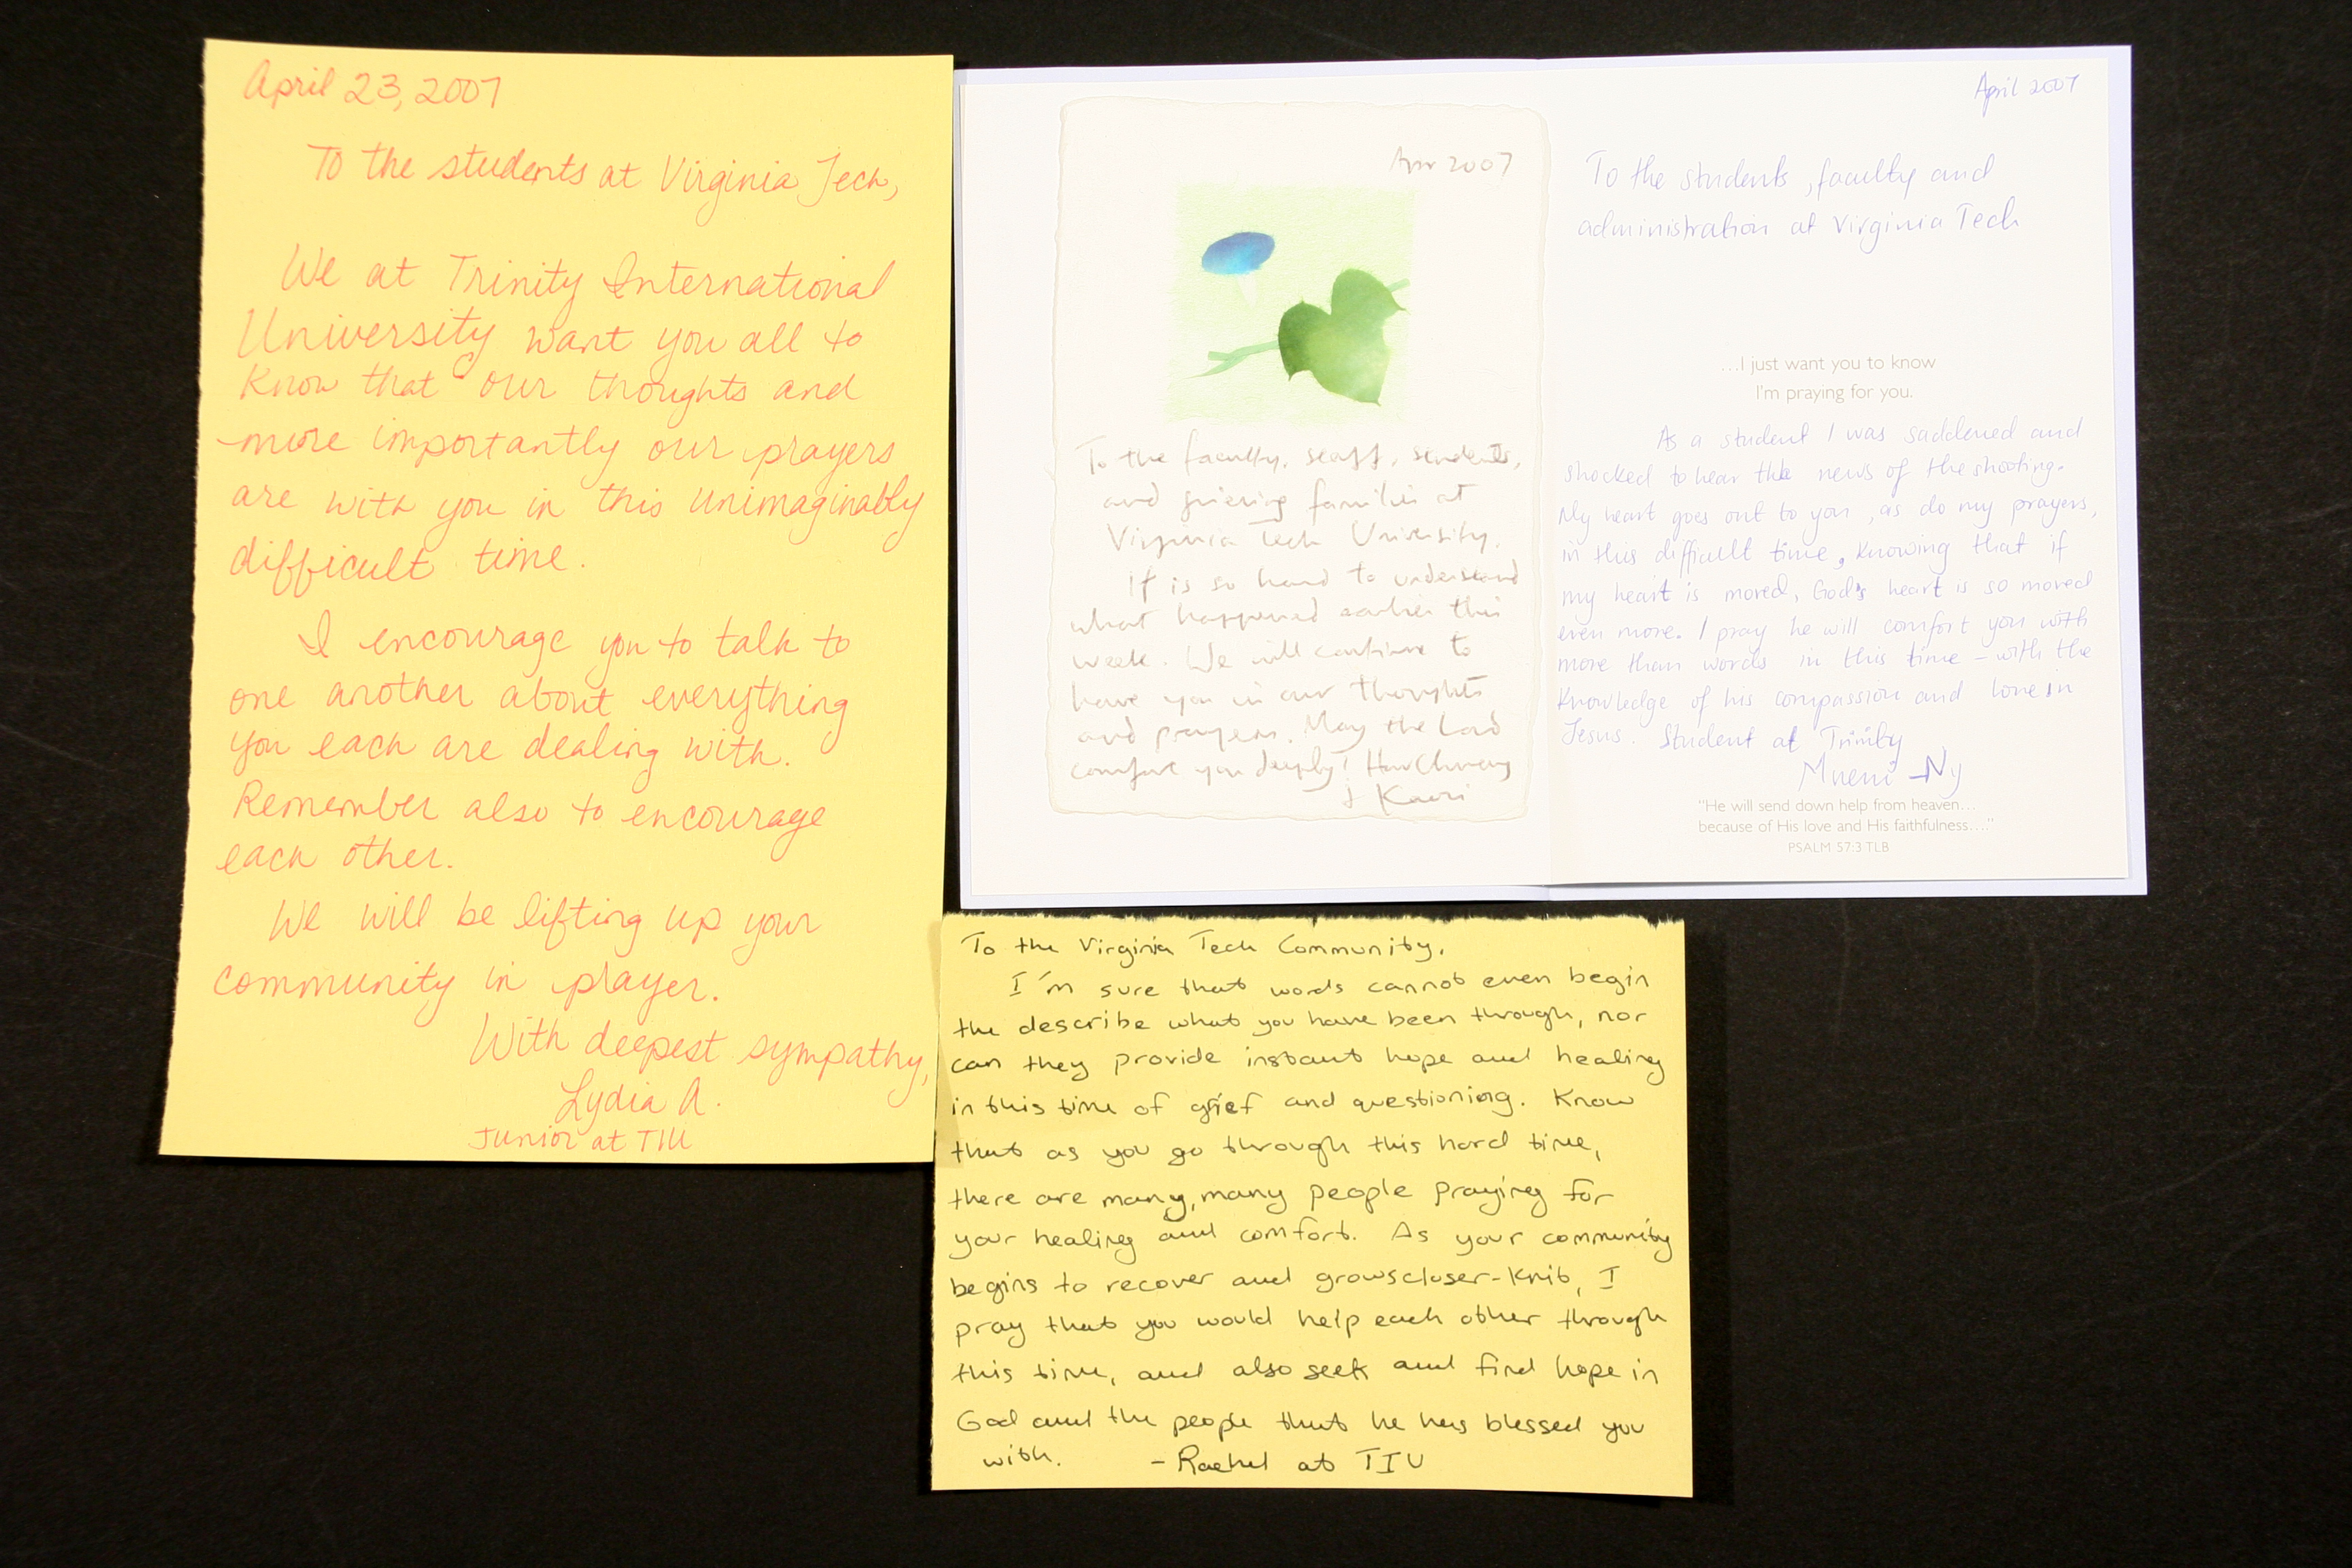 April 23, 2007
To the students at Virginia Tech,
We at Trinity International
University want you all to
know that our thoughts and
more importantly our prayers
are with you in this unimaginably
difficult time.
I encourage you to talk to
one another about everything
you each are dealing with.
Remember also to encourage
each other.
We will be lifting up your
community in prayer.
With deepest sympathy,
Lydia A.
Junior at TIU
Apr 2007
To the faculty, staff, students,
and grieving families at
Virginia Tech University,
It is so hard to understand
what happened earlier this
week. We will continue to
have you in our thoughts
and prayers. May the Lord
comfort you deeply!
& Kaori
April 2007
To the students, faculty and
administration at Virginia Tech
...I just want you to know
I'm praying for you.
As a student I was saddened and
shocked to hear the news of the shooting.
My heart goes out to you, as do my prayers,
in this difficult time, knowing that if
my heart is moved, God's heart is so moved
even more. I pray he will comfort you with
more than words in this time - with the
knowledge of his compassion and love in
Jesus. Student at Trinity
"He will send down help from heaven...
because of His love and His faithfulness...."
PSALM 57:3 TLB
To the Virginia Tech Community,
I'm sure that words cannot even begin
the describe what you have been through, nor
can they provide instant hope and healing
in this time of grief and questioning. Know
that as you go through this hard time,
there are many, many people praying for
your healing and comfort. As your community
begins to recover and grows closer-knit, I
pray that you would help each other through
this time, and also seek and find hope in
God and the people that he has blessed you
with. - Rachel at TIU